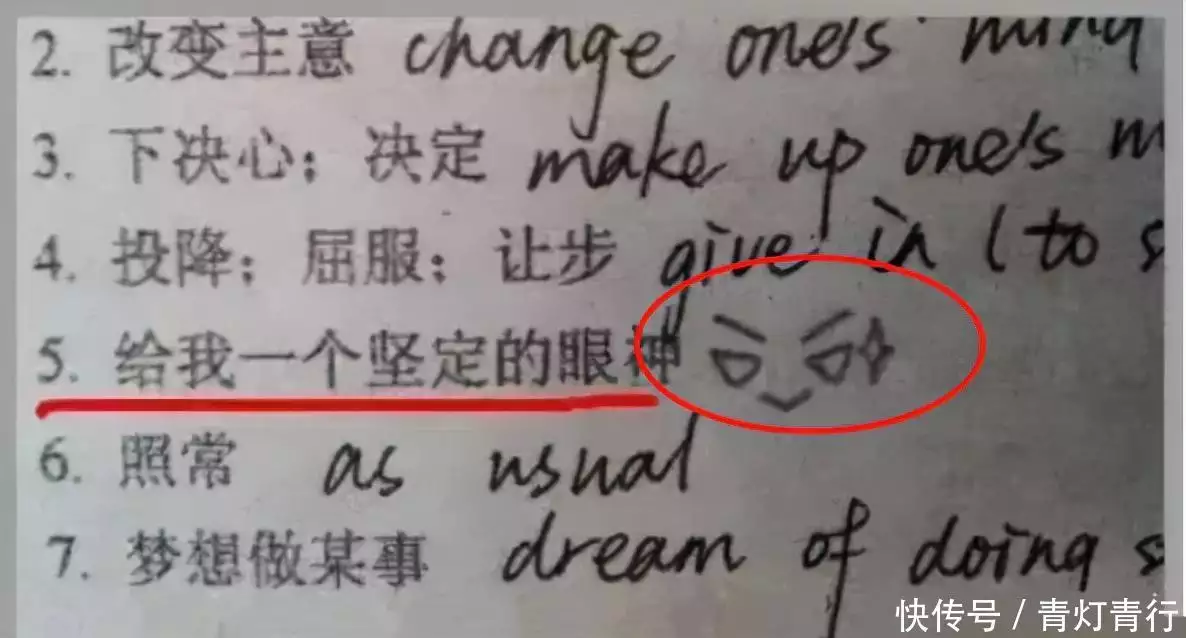 2. 改变主意 change one's mind
3. 下决心；决定 make up one's
4. 投降；屈服；让步 give in (to
5. 给我一个坚定的眼神
6. 照常 as usual
7. 梦想做某事 dream of doing
快传号 / 青灯青行